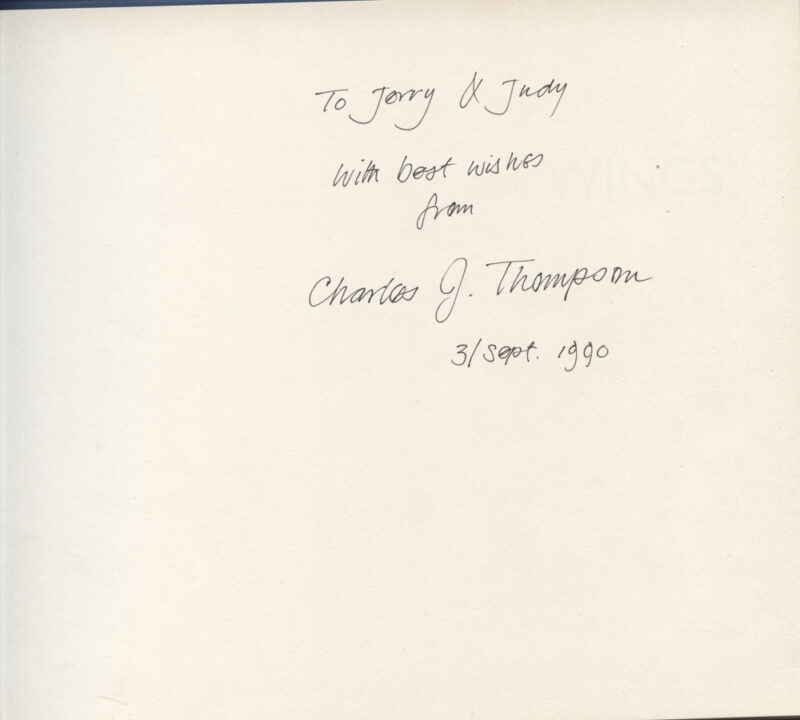 To Jerry & Judy
With best wishes
from
Charles J. Thompson
3/Sept. 1990